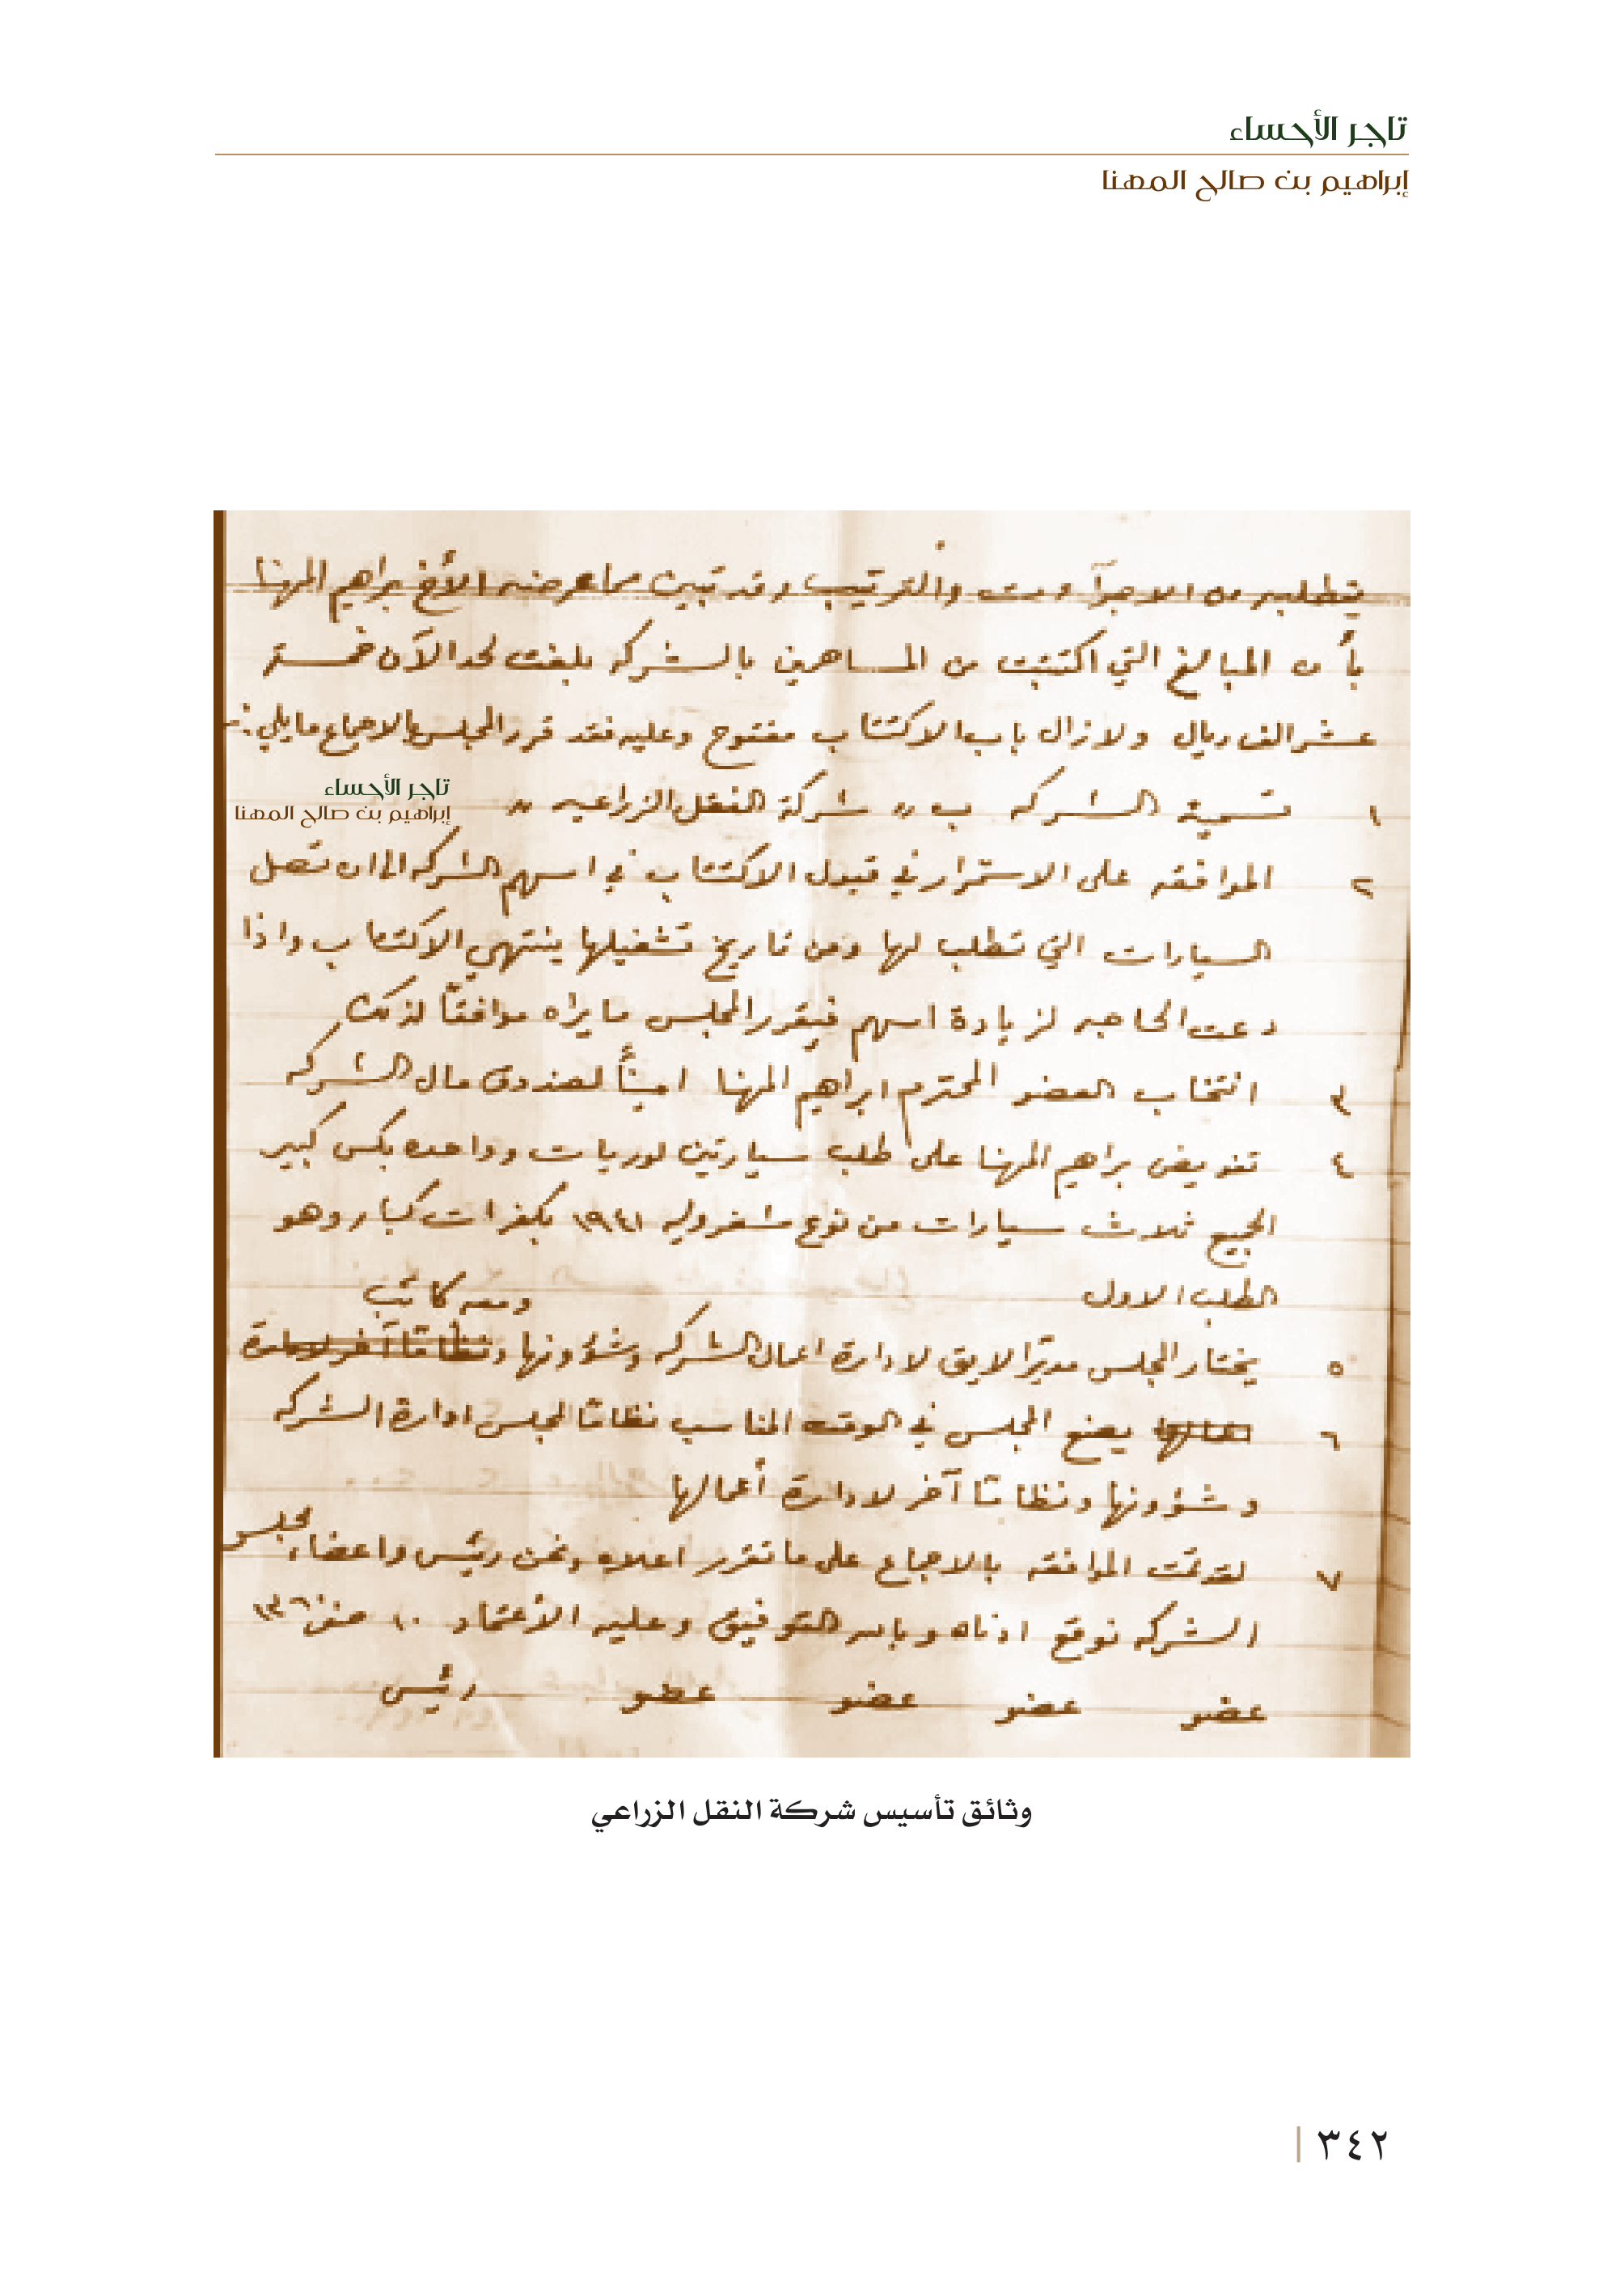 تاجر الأحساء
إبراهيم بن صالح المهنا
يتطلبه من الاجراآت والترتيب وقد تبين مما عرضه الأخ براهيم المهنا
بأن المبالغ التي اكتتبت من المساهمين بالشركه بلغت لحد الآن خمسة
عشر الف ريال ولازال باب الاكتتاب مفتوح وعليه فقد قرر المجلس بالاجماع مايلي :-
١ تسمية الشركه ب " شركة النقل الزراعيه "
تاجر الأحساء
إبراهيم بن صالح المهنا
٢ الموافقه على الاستمرار في قبول الاكتتاب في اسهم الشركه الى ان تصل
السيارات التي تطلب لها ومن تاريخ تشغيلها ينتهي الاكتتاب واذا
دعت الحاجه لزيادة اسهم فيقرر المجلس مايراه موافقاً لذلك
٣ انتخاب العضو المحترم ابراهيم المهنا اميناً لصندوق مال الشركه
٤ تفويض براهيم المهنا على طلب سيارتين لوريات وواحده بكس كبير
الجميع ثلاث سيارات من نوع شفروليه ١٩٤١ بكفرات كبار وهو
الطلب الاول
ومعه كاتب
٥ يختار المجلس مديرًا لايق لادارة اعمال الشركه وشؤونها ونظاماً آخر لادارة
اعمالها
٦ يضع المجلس في الوقت المناسب نظامًا لمجلس ادارة الشركه
وشؤونها ونظامًا آخر لادارة أعمالها
٧ لقد تمت الموافقه بالاجماع على ما تقرر اعلاه ونحن رئيس واعضاء مجلس
الشركه نوقع ادناه وبالله التوفيق وعليه الأعتماد ١٠ صفر ١٣٦٠
عضو عضو عضو عضو رئيس
وثائق تأسيس شركة النقل الزراعي
٣٤٢